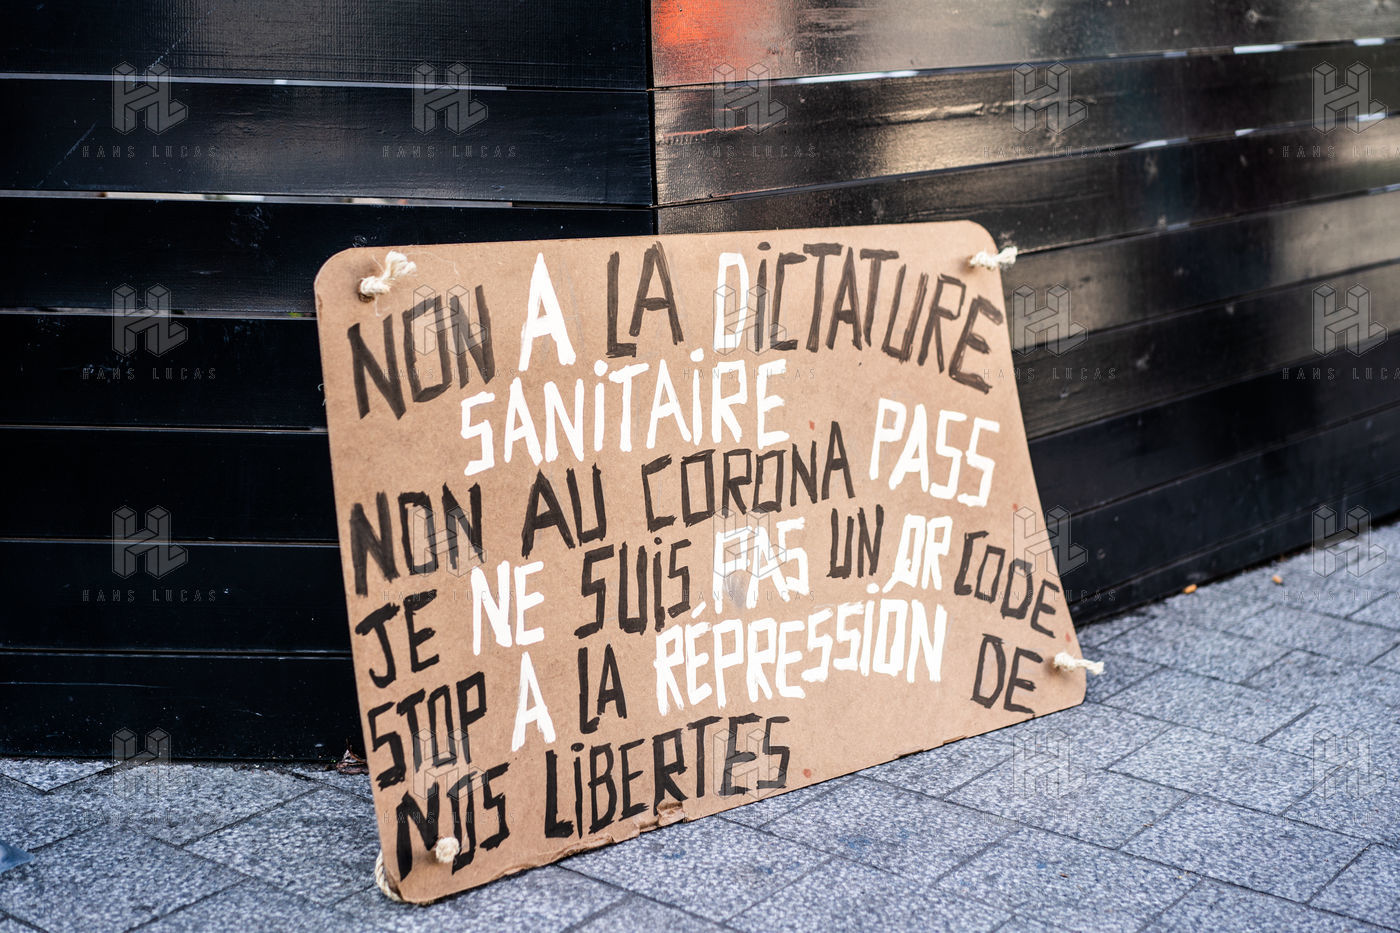 NON A LA DiCTATURE
SANiTAiRE
NON AU CORONA PASS
JE NE SUiS PAS UN QR CODE
STOP A LA RÉPRESSiON DE
NOS LiBERTES
HANS LUCAS